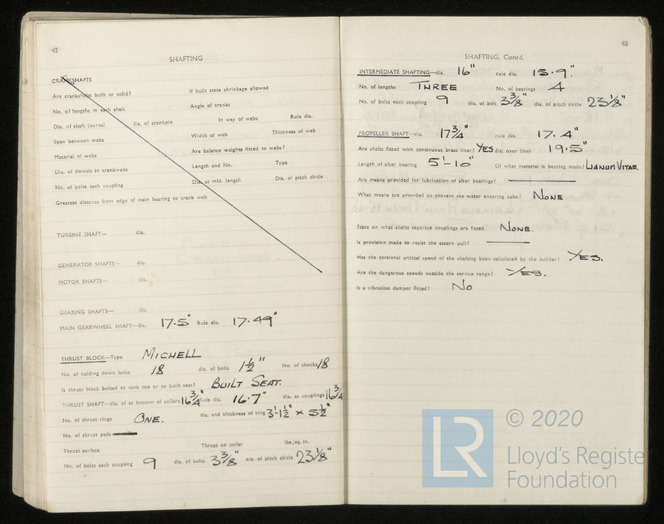 42
SHAFTING
CRANKSHAFTS
Are crankshafts built or solid? If built state shrinkage allowed
No. of lengths in each shaft Angle of cranks
Dia. of shaft journal dia. of crankpin In way of webs Rule dia.
Span between webs Width of web Thickness of web
Material of webs Are balance weights fitted to webs?
Dia. of dowels in crankwebs Length and No. Type
No. of bolts each coupling Dia. at mid. length Dia. of pitch circle
Greatest distance from edge of main bearing to crank web
TURBINE SHAFT— dia.
GENERATOR SHAFT— dia.
MOTOR SHAFTS— dia.
GEARING SHAFTS— dia.
MAIN GEARWHEEL SHAFT— dia. 17.5" Rule dia. 17.49"
THRUST BLOCK—Type MICHELL
No. of holding down bolts 18 dia. of bolts 1½" No. of chocks 18
Is thrust block bolted to tank top or to built seat? BUILT SEAT.
THRUST SHAFT—dia. at bottom of collars 16¾" Rule dia. 16.7" dia. at couplings 16¾"
No. of thrust rings ONE. dia. and thickness of ring 3'-1½" × 5½"
No. of thrust pads
Thrust surface Thrust on collar lbs./sq. in.
No. of bolts each coupling 9 dia. of bolts 3⅜" dia. of pitch circle 23⅛"
43
SHAFTING, Contd.
INTERMEDIATE SHAFTING—dia. 16" rule dia. 15.9".
No. of lengths THREE No. of bearings 4
No. of bolts each coupling 9 dia. of bolt 3⅜" dia. of pitch circle 23⅛"
PROPELLER SHAFT—dia. 17¾" rule dia. 17.4"
Are shafts fitted with continuous brass liner? YES dia. over liner 19.5"
Length of after bearing 5'-10" Of what material is bearing made? LIGNUM VITAE.
Are means provided for lubrication of after bearings?
What means are provided to prevent sea water entering tube? NONE
State on what shafts separate couplings are fitted NONE.
Is provision made to resist the astern pull?
Has the torsional critical speed of the shafting been calculated by the builder? YES.
Are the dangerous speeds outside the service range? YES.
Is a vibration damper fitted? NO
© 2020
LR
Lloyd's Register
Foundation